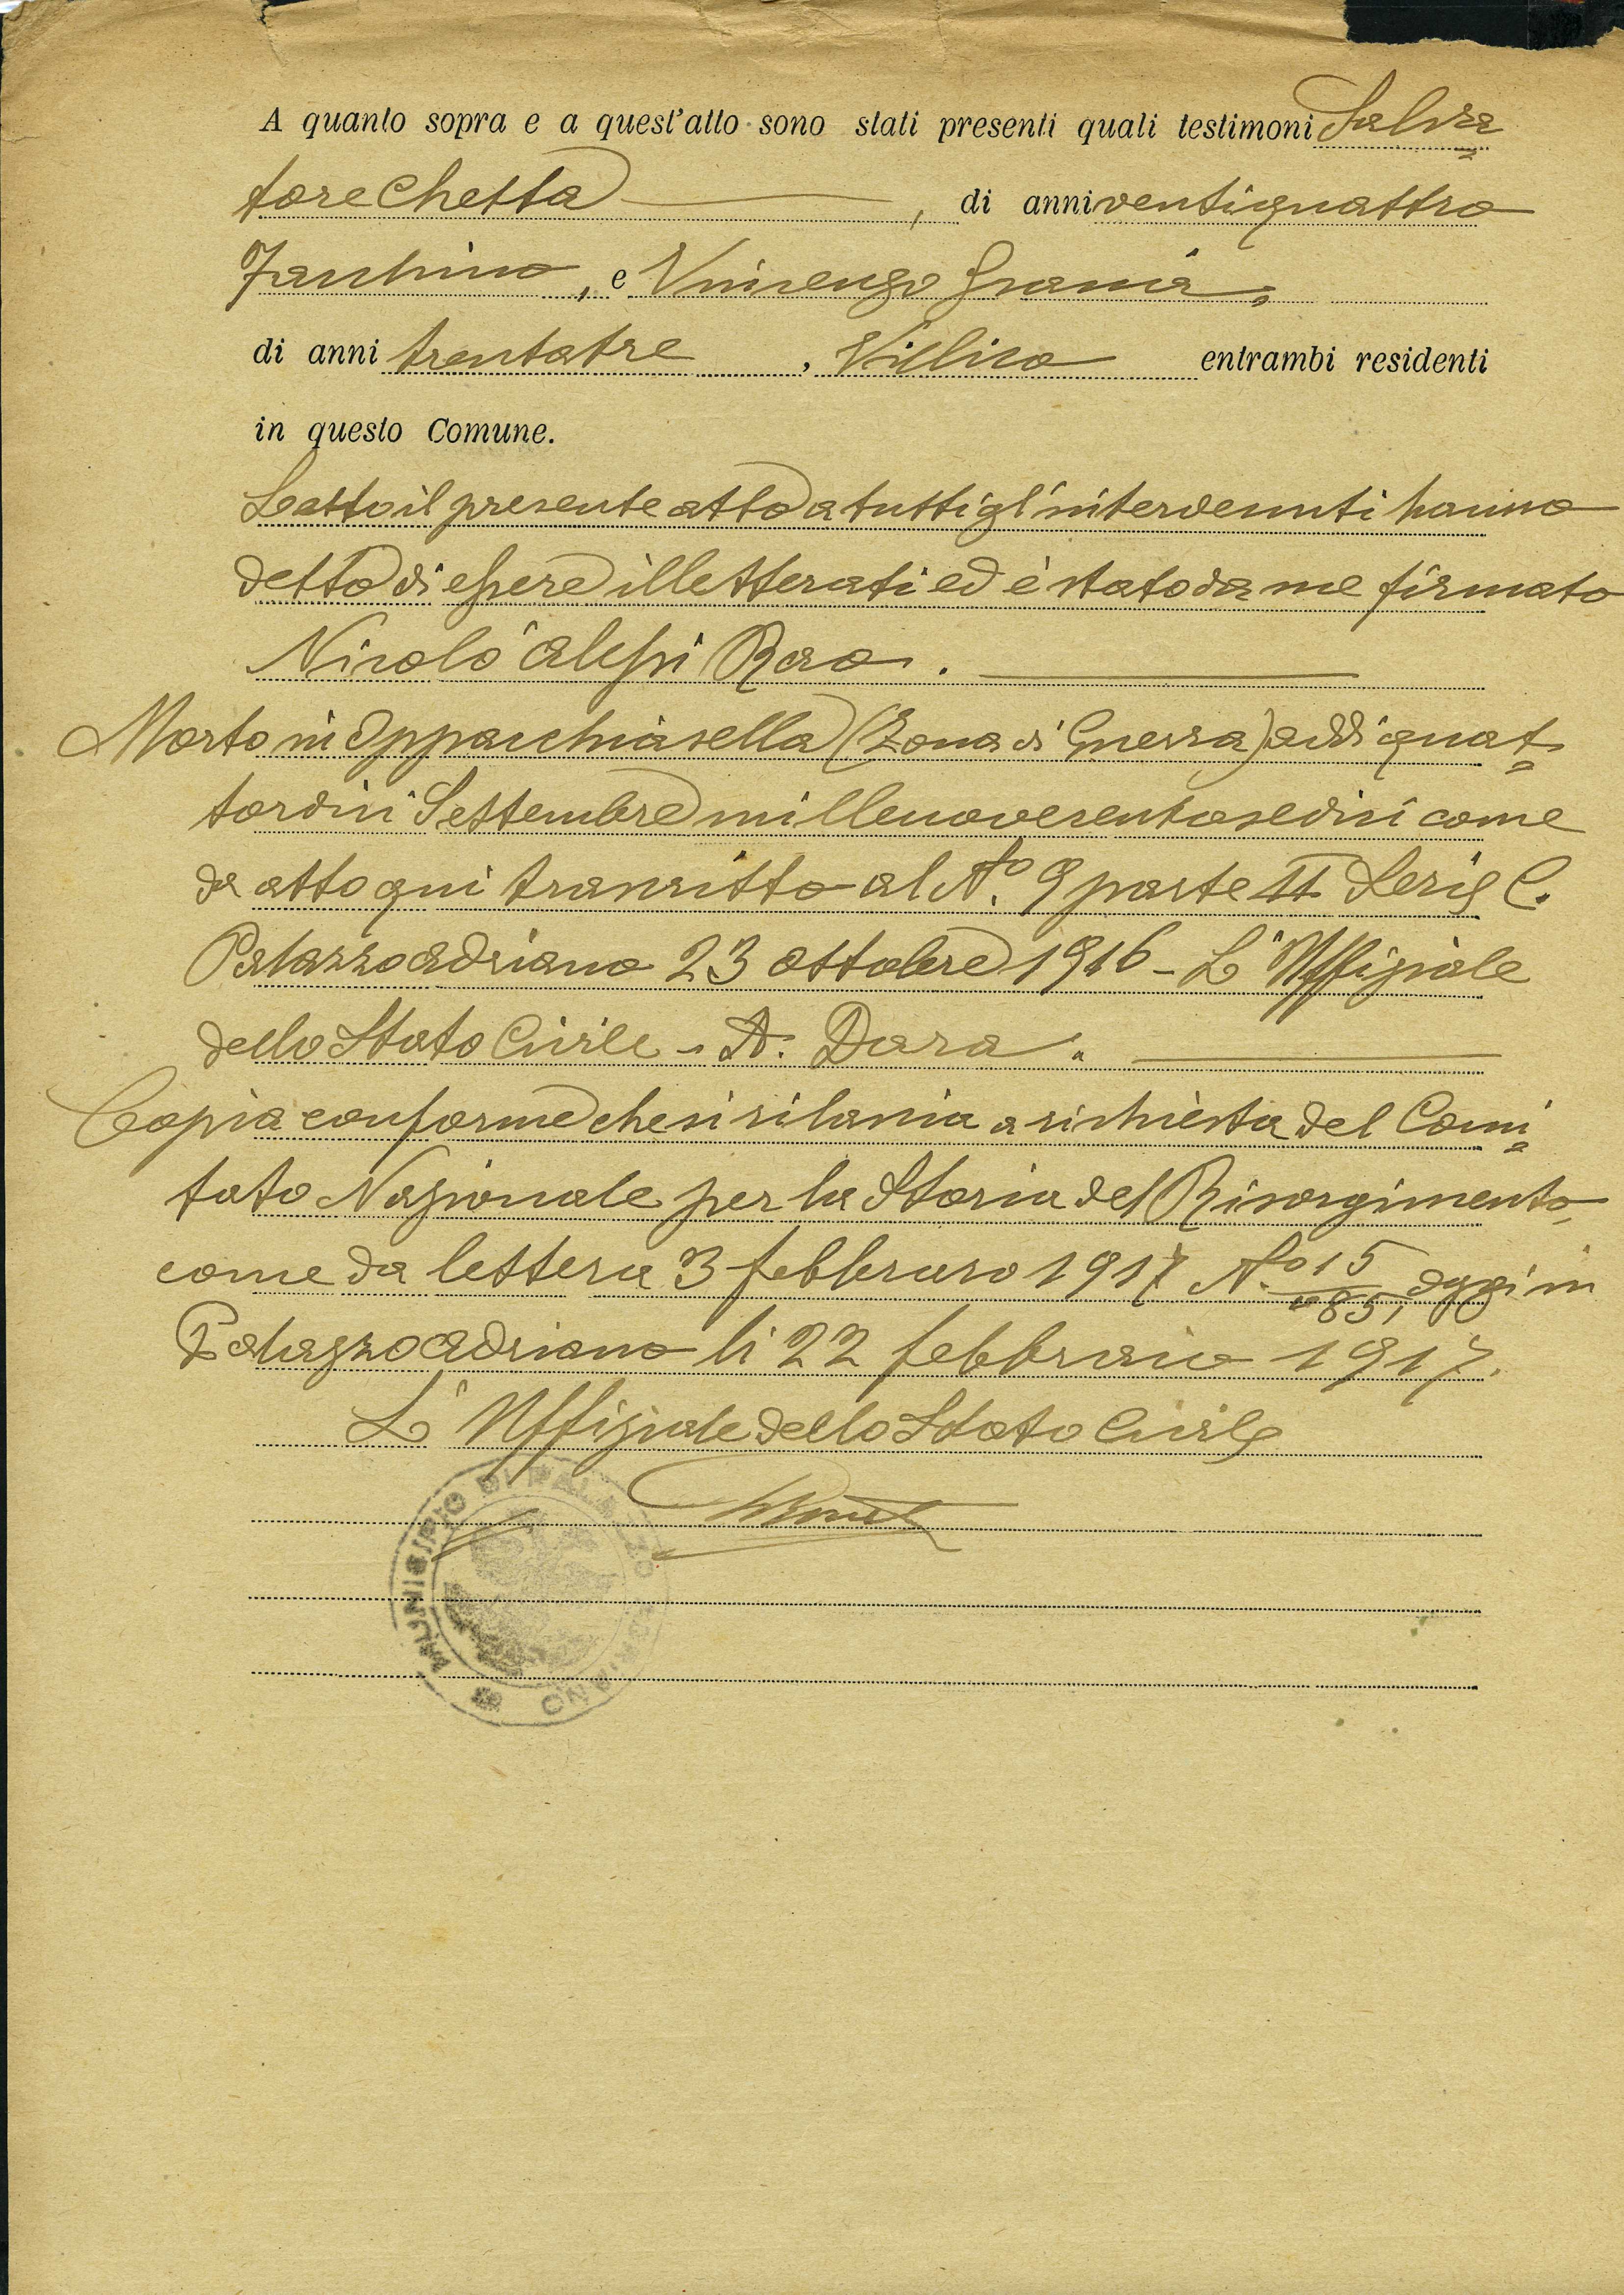 A quanto sopra e a quest'atto sono stati presenti quali testimoni Salva=
tore Chetta, di anni ventiquattro
Facchino, e Vincenzo Granà,
di anni trentatre, Villico entrambi residenti
in questo Comune.
Letto il presente atto a tutti gl'intervenuti hanno
detto di essere illetterati ed è stato da me firmato
Nicolò Alessi Rao.
Morto in Oppacchiasella (Zona di Guerra) addi quat=
tordici Settembre millenovecentosedici come
da atto qui trascritto al No. 9 parte II Serie C.
Palazzo Adriano 23 Ottobre 1916 - L'Uffiziale
dello Stato Civile - A. Dara.
Copia conforme che si rilascia a richiesta del Comi=
tato Nazionale per la Storia del Risorgimento,
come da lettera 3 febbraro 1917 No. 15 oggi in
Palazzo Adriano li 22 febbraio 1917.
L'Uffiziale dello Stato Civile
MUNICIPIO DI PALAZZO ADRIANO